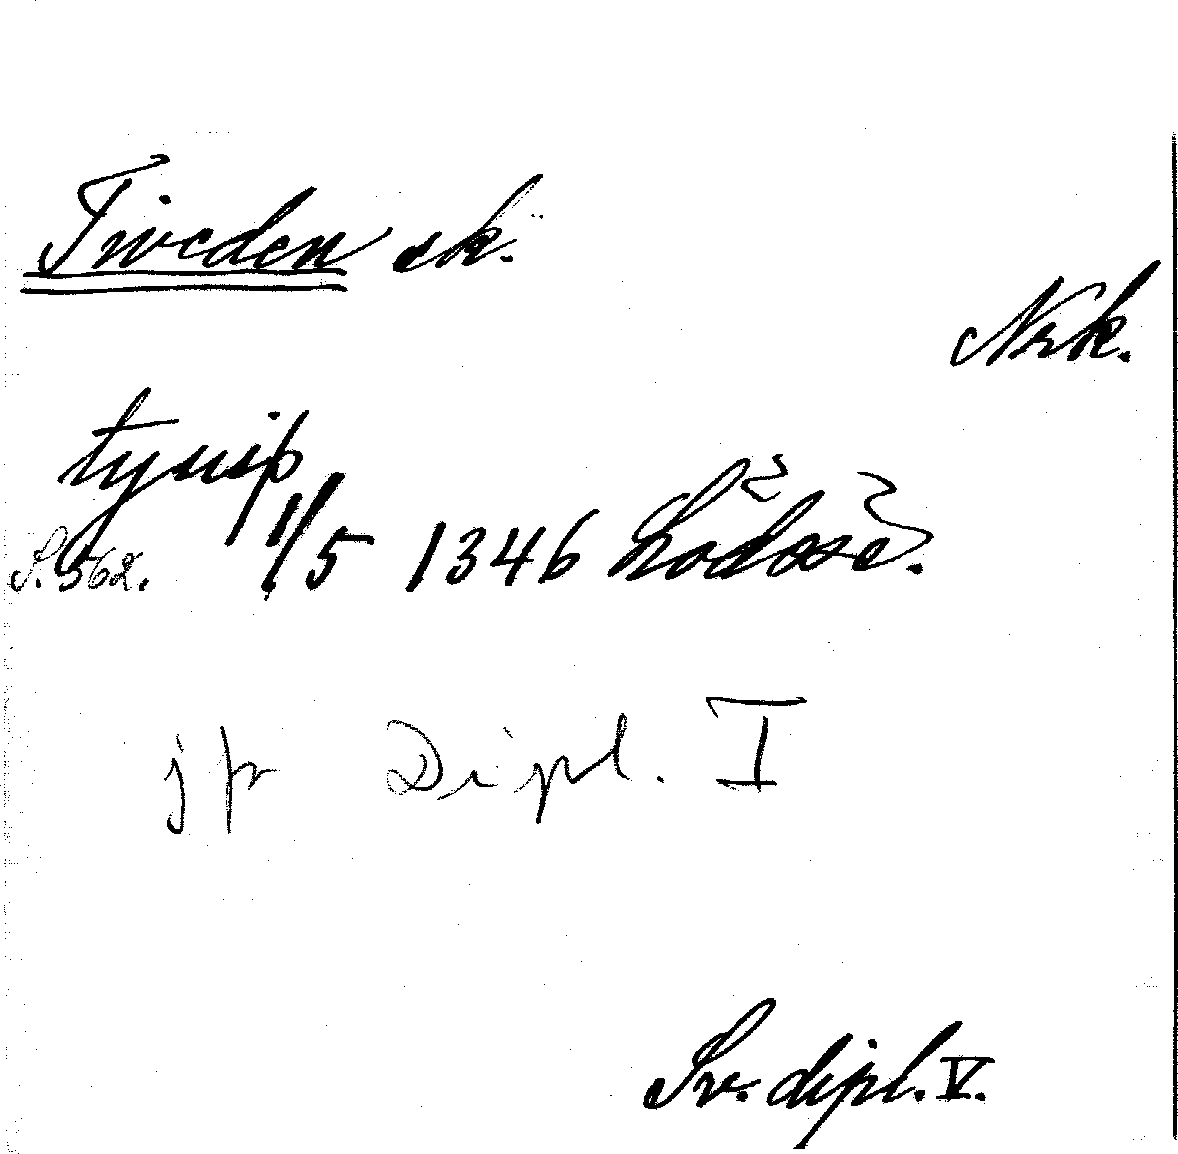 Tiveden sk.
Nrk.
tyuiþ
S. 562. 1/5 1346 Lödöse.
jfr Dipl. I
Sv. dipl. V.